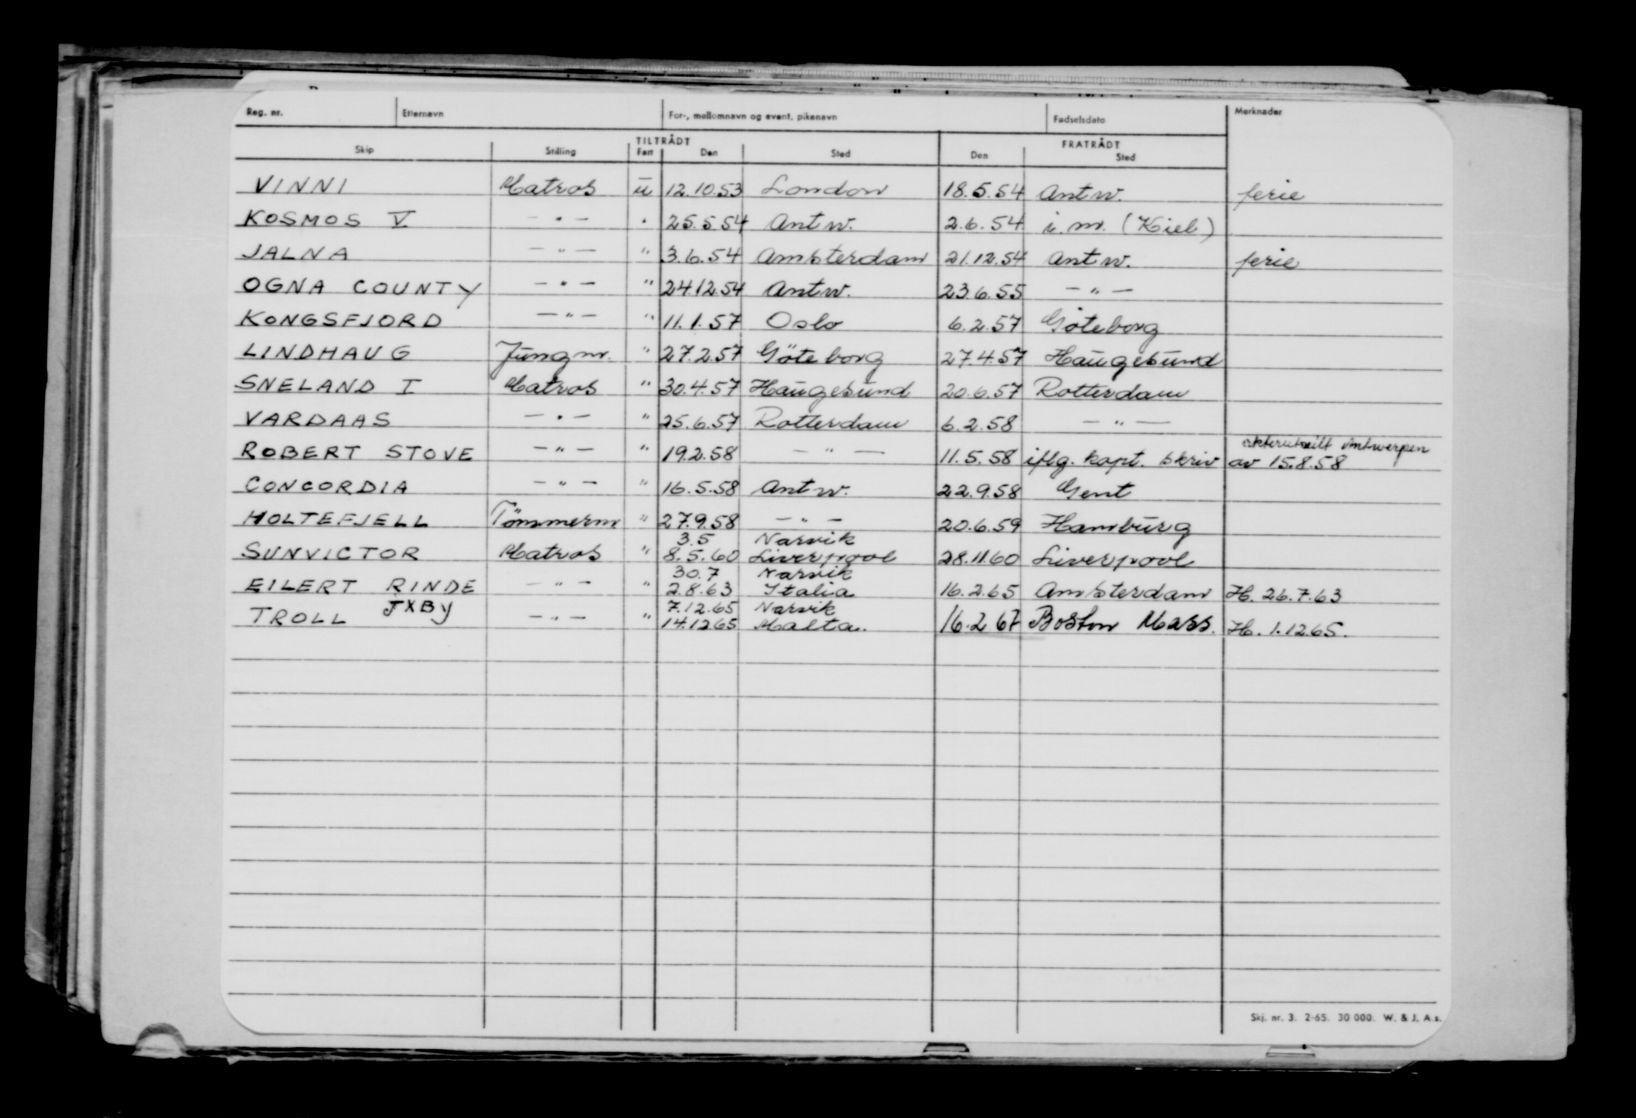 Reg. nr. Etternavn For-, mellomnavn og event. pikenavn Fødselsdato Merknader
TILTRÅDT FRATRÅDT
Skip Stilling Fart Den Sted Den Sted
VINNI Matros u 12.10.53 London 18.5.54 Antw. ferie
KOSMOS V - " - " 25.5.54 Antw. 2.6.54 i.m. (Kiel)
JALNA - " - " 3.6.54 Amsterdam 21.12.54 Antw. ferie
OGNA COUNTY - " - " 24.12.54 Antw. 23.6.55 - " -
KONGSFJORD - " - " 11.1.57 Oslo 6.2.57 Göteborg
LINDHAUG Jungm. " 27.2.57 Göteborg 27.4.57 Haugesund
SNELAND I Matros " 30.4.57 Haugesund 20.6.57 Rotterdam
VARDAAS - " - " 25.6.57 Rotterdam 6.2.58 - " -
Antwerpen
ROBERT STOVE - " - " 19.2.58 - " - 11.5.58 iflg. kapt. skriv av 15.8.58
CONCORDIA - " - " 16.5.58 Antw. 22.9.58 Gent
HOLTEFJELL Tömmerm " 27.9.58 - " - 20.6.59 Hamburg
3.5 Narvik
SUNVICTOR Matros " 8.5.60 Liverpool 28.11.60 Liverpool
30.7 Narvik
EILERT RINDE - " - " 2.8.63 Italia 16.2.65 Amsterdam H. 26.7.63
JXBY 7.12.65 Narvik
TROLL - " - " 14.12.65 Malta. 16.2 67 Boston Mass. H. 1.12.65.
Skj. nr. 3. 2-65. 30 000. W. & J. A.s.